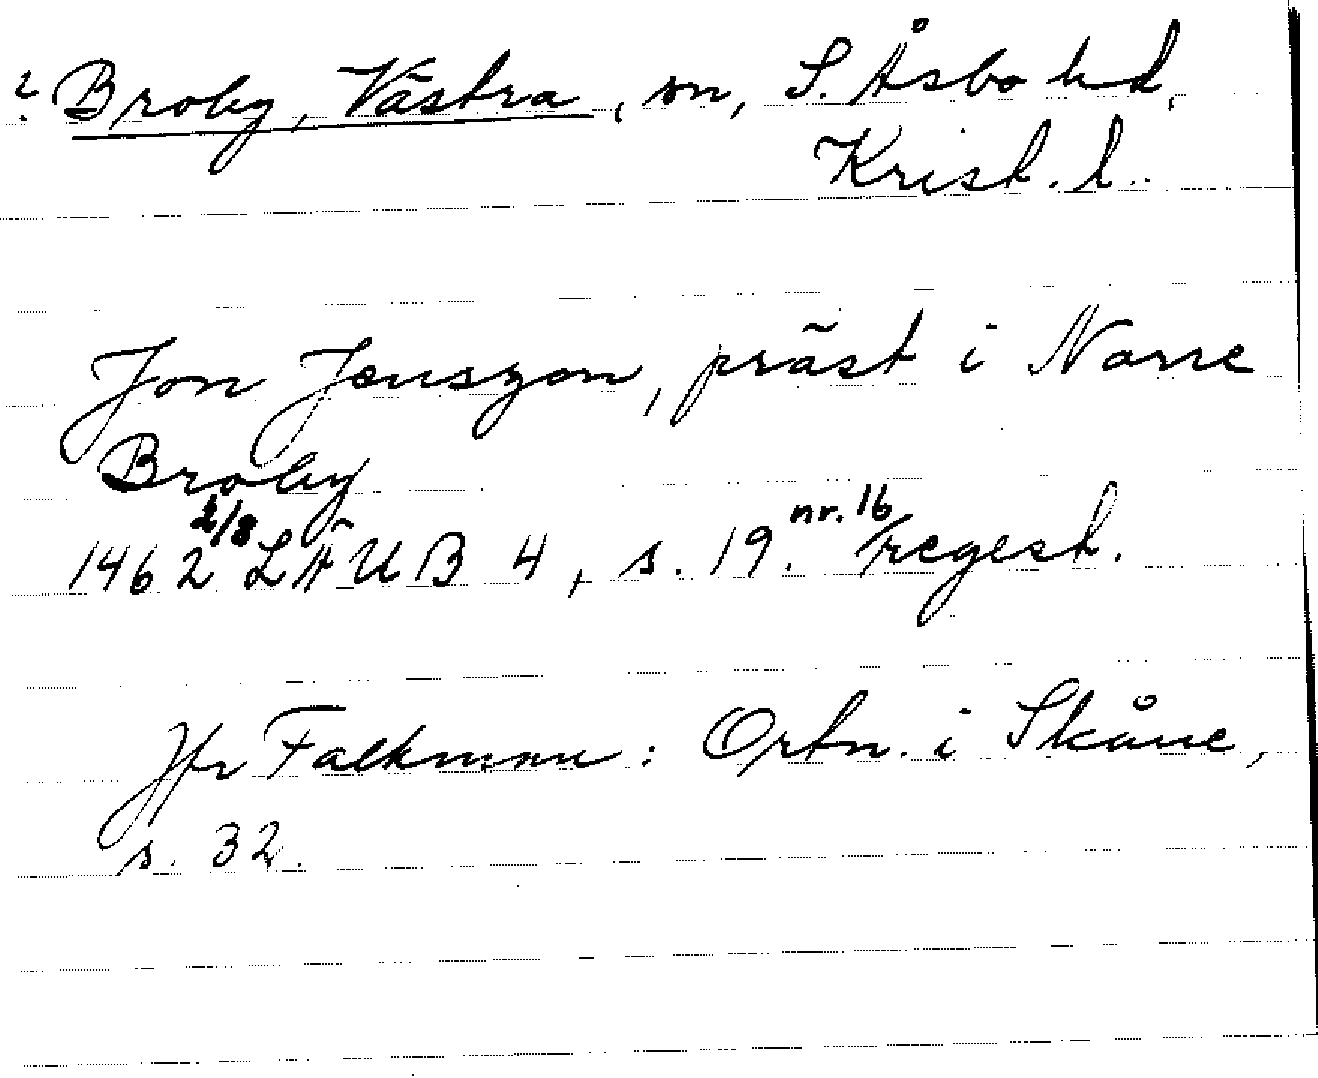 ? Broby, Västra, sn, S. Åsbo hd,
Krist. l.
Jon Jenszon, präst i Norre
Broby
1462 2/8 LÄUB 4, s. 19. nr. 16 /regest.
Jfr Falkman: Ortn. i Skåne,
s. 32.